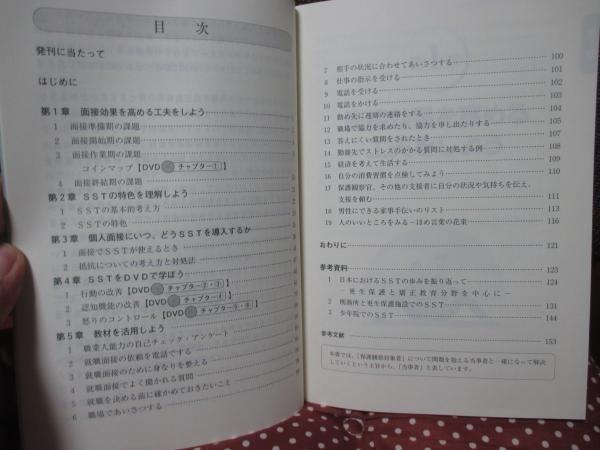 目 次
発刊に当たって
はじめに
第1章 面接効果を高める工夫をしよう
1 面接準備期の課題
2 面接開始期の課題
3 面接作業期の課題
コインマップ【DVD チャプター①】
4 面接終結期の課題
第2章 SSTの特色を理解しよう
1 SSTの基本的考え方
2 SSTの特色
第3章 個人面接にいつ、どうSSTを導入するか
1 面接でSSTが使えるとき
2 抵抗についての考え方と対処法
第4章 SSTをDVDで学ぼう
1 行動の改善【DVD チャプター②・③】
2 認知機能の改善【DVD チャプター④】
3 怒りのコントロール【DVD チャプター⑤・⑥】
第5章 教材を活用しよう
1 職業人能力の自己チェック・アンケート
2 就職面接の依頼を電話でする
3 就職面接のために身なりを整える
4 就職面接でよく聞かれる質問
5 就職を決める前に確かめておきたいこと
6 職場であいさつする
7 相手の状況に合わせてあいさつする 100
8 仕事の指示を受ける 101
9 電話を受ける 102
10 電話をかける 103
11 勤め先に遅刻の連絡をする 104
12 職場で協力を求めたり、協力を申し出たりする
13 答えにくい質問をされたとき
14 勤務先でストレスのかかる質問に対処する例
15 経済を考えて生活する
16 自分の消費習慣を点検してみよう
17 保護観察官、その他の支援者に自分の状況や気持ちを伝え、
支援を頼む 111
18 男性にできる家事手伝いのリスト 113
19 人のいいところをみる－ほめ言葉の花束 116
おわりに 121
参考資料 123
1 日本におけるSSTの歩みを振り返って 124
－更生保護と矯正教育分野を中心に－
2 明治期と更生保護施設でのSST 131
3 少年院でのSST 144
参考文献 153
本書では、「保護観察対象者」について問題を抱える当事者と一緒になって解決
していくという主旨から、「当事者」と表しています。